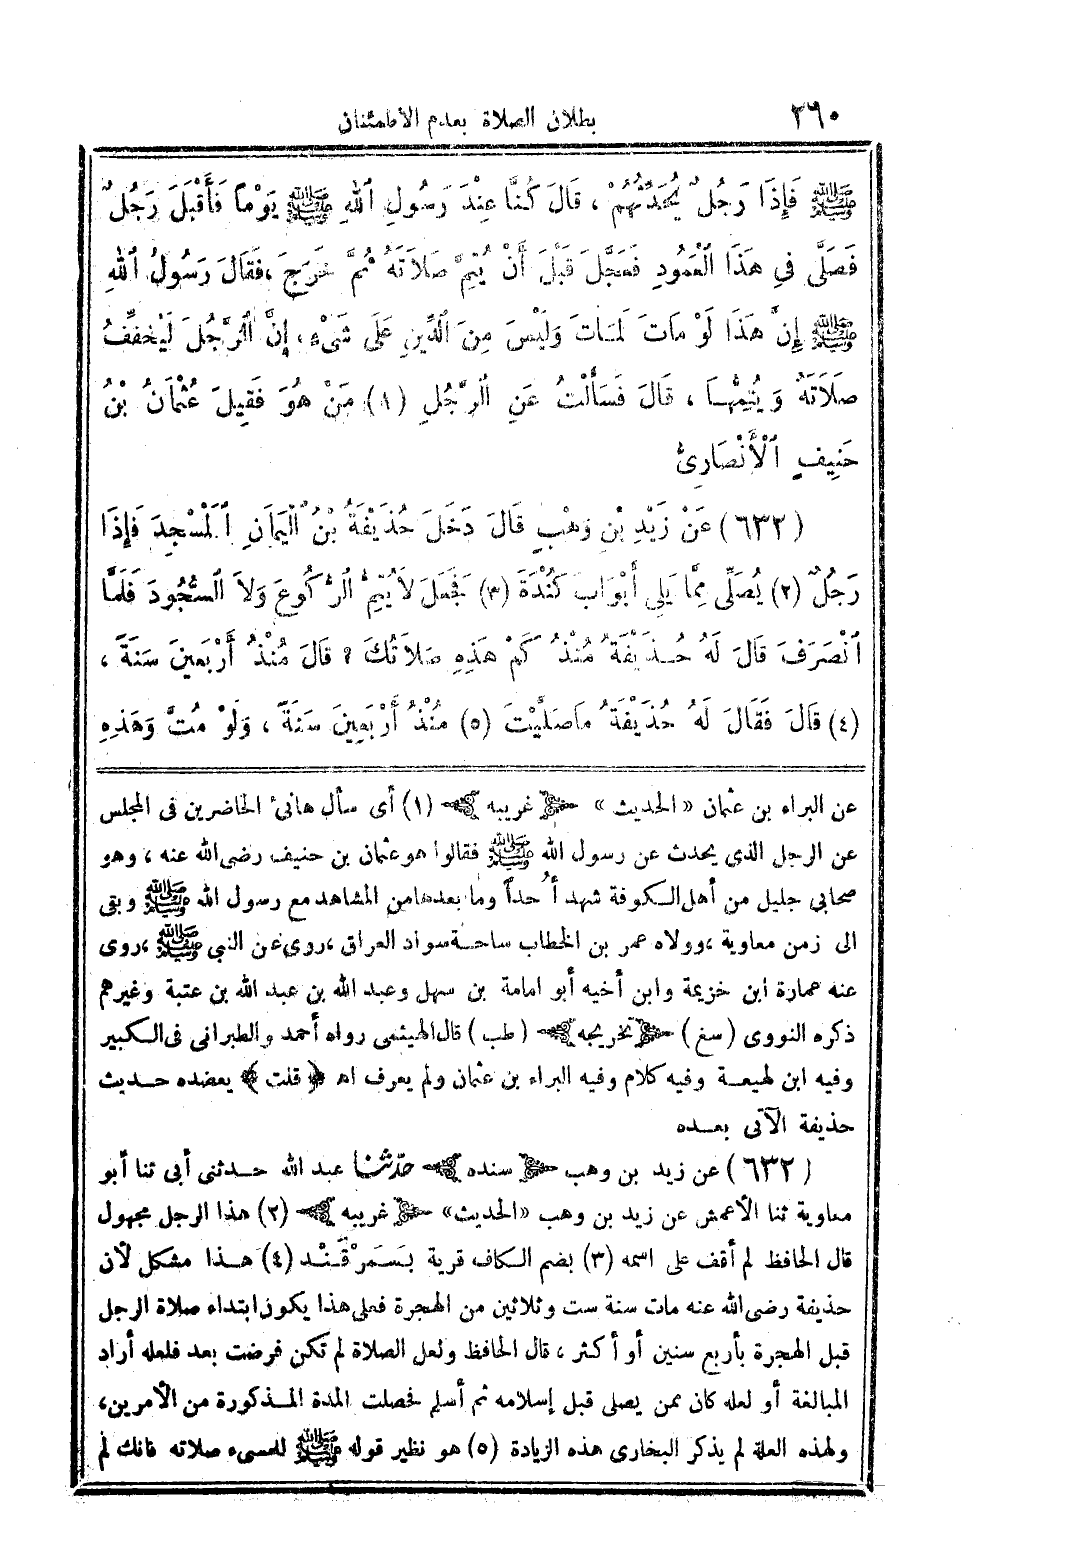 ٢٦٠ بطلان الصلاة بعدم الاطمئنان
ﷺ فَإِذَا رَجُلٌ يُحَدِّثُهُمْ ، قَالَ كُنَّا عِنْدَ رَسُولِ ٱللهِ ﷺ يَوْمًا فَأَقْبَلَ رَجُلٌ
فَصَلَّى فِي هَذَا ٱلْعَمُودِ فَعَجَّلَ قَبْلَ أَنْ يُتِمَّ صَلَاتَهُ ثُمَّ خَرَجَ ، فَقَالَ رَسُولُ ٱللهِ
ﷺ إِنَّ هَذَا لَوْ مَاتَ لَمَاتَ وَلَيْسَ مِنَ ٱلدِّينِ عَلَى شَىْءٍ ، إِنَّ ٱلرَّجُلَ لَيُخَفِّفُ
صَلَاتَهُ وَيُتِمُّهَا ، قَالَ فَسَأَلْتُ عَنِ ٱلرَّجُلِ (١) مَنْ هُوَ فَقِيلَ عُثْمَانُ بْنُ
حَنِيفٍ ٱلْأَنْصَارِىُّ
(٦٣٢) عَنْ زَيْدِ بْنِ وَهْبٍ قَالَ دَخَلَ حُذَيْفَةُ بْنُ ٱلْيَمَانِ ٱلْمَسْجِدَ فَإِذَا
رَجُلٌ (٢) يُصَلِّى مِمَّا يَلِى أَبْوَابَ كُنْدَةَ (٣) فَجَعَلَ لَا يُتِمُّ ٱلرُّكُوعَ وَلَا ٱلسُّجُودَ فَلَمَّا
ٱنْصَرَفَ قَالَ لَهُ حُذَيْفَةُ مُنْذُ كَمْ هَذِهِ صَلَاتُكَ ؟ قَالَ مُنْذُ أَرْبَعِينَ سَنَةً ،
(٤) قَالَ فَقَالَ لَهُ حُذَيْفَةُ مَاصَلَّيْتَ (٥) مُنْذُ أَرْبَعِينَ سَنَةً ، وَلَوْ مُتَّ وَهَذِهِ
عن البراء بن عثمان «الحديث» ﴿غريبه﴾ (١) أى سأل هانئ الحاضرين فى المجلس
عن الرجل الذى يحدث عن رسول الله ﷺ فقالوا هو عثمان بن حنيف رضى الله عنه ، وهو
صحابي جليل من أهل الكوفة شهد أُحداً وما بعدها من المشاهد مع رسول الله ﷺ وبقى
الى زمن معاوية ، وولاه عمر بن الخطاب ساحة سواد العراق ، روى عن النبي ﷺ ، روى
عنه عمارة ابن خزيمة وابن أخيه أبو امامة بن سهل وعبد الله بن عبد الله بن عتبة وغيرهم
ذكره النووى (سغ) ﴿تخريجه﴾ (طب) قال الهيثمى رواه أحمد والطبرانى فى الكبير
وفيه ابن لهيعة وفيه كلام وفيه البراء بن عثمان ولم يعرف اهـ ﴿قلت﴾ يعضده حديث
حذيفة الآتى بعده
(٦٣٢) عن زيد بن وهب ﴿سنده﴾ حدّثنا عبد الله حدثنى أبى ثنا أبو
معاوية ثنا الأعمش عن زيد بن وهب «الحديث» ﴿غريبه﴾ (٢) هذا الرجل مجهول
قال الحافظ لم أقف على اسمه (٣) بضم الكاف قرية بسَمرْقَنْد (٤) هذا مشكل لأن
حذيفة رضى الله عنه مات سنة ست وثلاثين من الهجرة فعلى هذا يكون ابتداء صلاة الرجل
قبل الهجرة بأربع سنين أو أكثر ، قال الحافظ ولعل الصلاة لم تكن فرضت بعد فلعله أراد
المبالغة أو لعله كان ممن يصلى قبل إسلامه ثم أسلم فحصلت المدة المذكورة من الأمرين ،
ولهذه العلة لم يذكر البخارى هذه الزيادة (٥) هو نظير قوله ﷺ للمسىء صلاته فانك لم